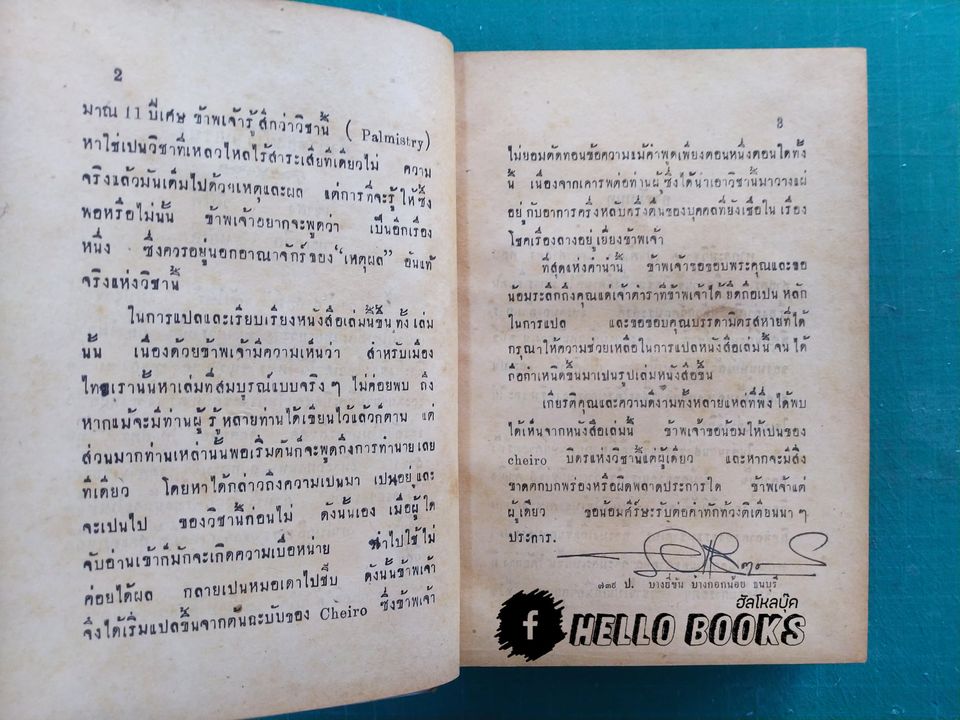 2
มาณ 11 ปีเศษ ข้าพเจ้ารู้สึกว่าวิชานี้ ( Palmistry)
หาใช่เปนวิชาที่เหลวไหลไร้สาระเสียทีเดียวไม่ ความ
จริงแล้วมันเต็มไปด้วยเหตุและผล แต่การที่จะรู้ให้ซึ้ง
พอหรือไม่นั้น ข้าพเจ้าอยากจะพูดว่า เป็นอีกเรื่อง
หนึ่ง ซึ่งควรอยู่นอกอาณาจักร์ของ “เหตุผล” อันแท้
จริงแห่งวิชานี้
ในการแปลและเรียบเรียงหนังสือเล่มนี้ขึ้นทั้งเล่ม
นั้น เนื่องด้วยข้าพเจ้ามีความเห็นว่า สำหรับเมือง
ไทยเรานั้นหาเล่มที่สมบูรณ์แบบจริง ๆ ไม่ค่อยพบ ถึง
หากแม้จะมีท่านผู้รู้หลายท่านได้เขียนไว้แล้วก็ตาม แต่
ส่วนมากท่านเหล่านั้นพอเริ่มต้นก็จะพูดถึงการทำนายเลย
ทีเดียว โดยหาได้กล่าวถึงความเปนมา เปนอยู่และ
จะเปนไป ของวิชานี้ก่อนไม่ ดังนั้นเอง เมื่อผู้ใด
จับอ่านเข้าก็มักจะเกิดความเบื่อหน่าย นำไปใช้ไม่
ค่อยได้ผล กลายเปนหมอเดาไปซิบ ดังนั้นข้าพเจ้า
จึงได้เริ่มแปลขึ้นจากต้นฉะบับของ Cheiro ซึ่งข้าพเจ้า
3
ไม่ยอมตัดทอนข้อความแม้คำพูดเพียงตอนหนึ่งตอนใดทั้ง
นี้ เนื่องจากเคารพต่อท่านผู้ซึ่งได้นำเอาวิชานี้มาวางแผ่
อยู่กับอาการครึ่งหลับครึ่งตื่นของบุคคลที่ยังเชื่อในเรื่อง
โชคเรื่องลางอยู่เยี่ยงข้าพเจ้า
ที่สุดแห่งคำนำนี้ ข้าพเจ้าขอขอบพระคุณและขอ
น้อมระลึกถึงคุณแด่เจ้าตำราที่ข้าพเจ้าได้ยึดถือเปนหลัก
ในการแปล และขอขอบคุณบรรดามิตรสหายที่ได้
กรุณาให้ความช่วยเหลือในการแปลหนังสือเล่มนี้ จนได้
ถือกำเหนิดขึ้นมาเปนรูปเล่มหนังสือขึ้น
เกียรติคุณและความดีงามทั้งหลายแหล่ที่พึงได้พบ
ได้เห็นจากหนังสือเล่มนี้ ข้าพเจ้าขอน้อมให้เปนของ
cheiro บิดรแห่งวิชานี้แต่ผู้เดียว และหากจะมีสิ่ง
ขาดตกบกพร่องหรือผิดพลาดประการใด ข้าพเจ้าแต่
ผู้เดียว ขอน้อมศีร์ษะรับต่อคำทักท้วงติเตียนนา ๆ
ประการ.
๗๓๙ ป. บางยี่ขัน บางกอกน้อย ธนบุรี
ฮัลโหลบุ๊ค
f HELLO BOOKS